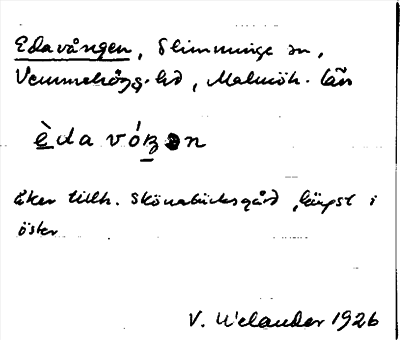 Edavången, Slimminge sn,
Vemmenhögs hd, Malmöh. län
è da vóŋ ən
Åker tillh. Skönabäcksgård, längst i
öster
V. Welander 1926